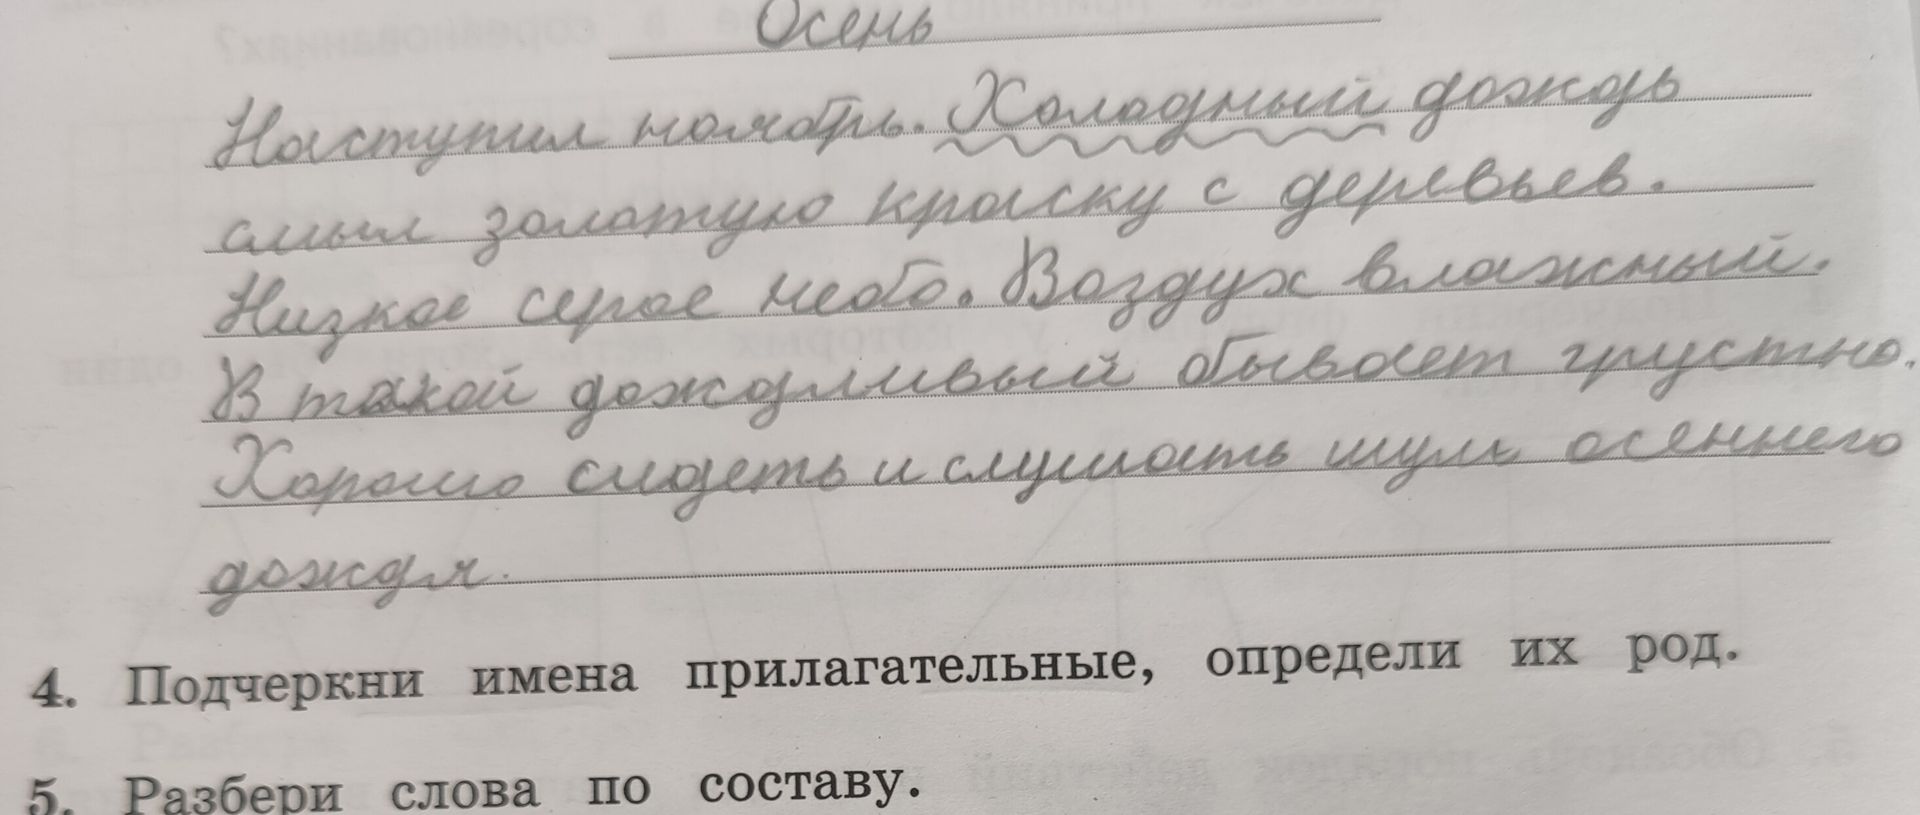 Осень
Наступил ноябрь. Холодный дождь
смыл золотую краску с деревьев.
Низкое серое небо. Воздух влажный.
В такой дождливый бывает грустно.
Хорошо сидеть и слушать шум осеннего
дождя.
4. Подчеркни имена прилагательные, определи их род.
5. Разбери слова по составу.